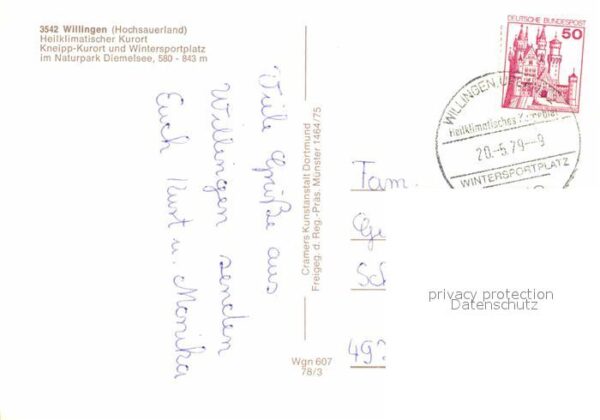 3542 Willingen (Hochsauerland)
Heilklimatischer Kurort
Kneipp-Kurort und Wintersportplatz
im Naturpark Diemelsee, 580 - 843 m
Viele Grüße aus
Willingen senden
Euch Kurt u. Monika
Cramers Kunstanstalt Dortmund
Freigeg. d. Reg.-Präs. Münster 1464/75
Wgn 607
78/3
DEUTSCHE BUNDESPOST
50
WILLINGEN, U
Heilklimatisches
20.-5.79--9
WINTERSPORTPLATZ
Fam.
49
privacy protection
Datenschutz